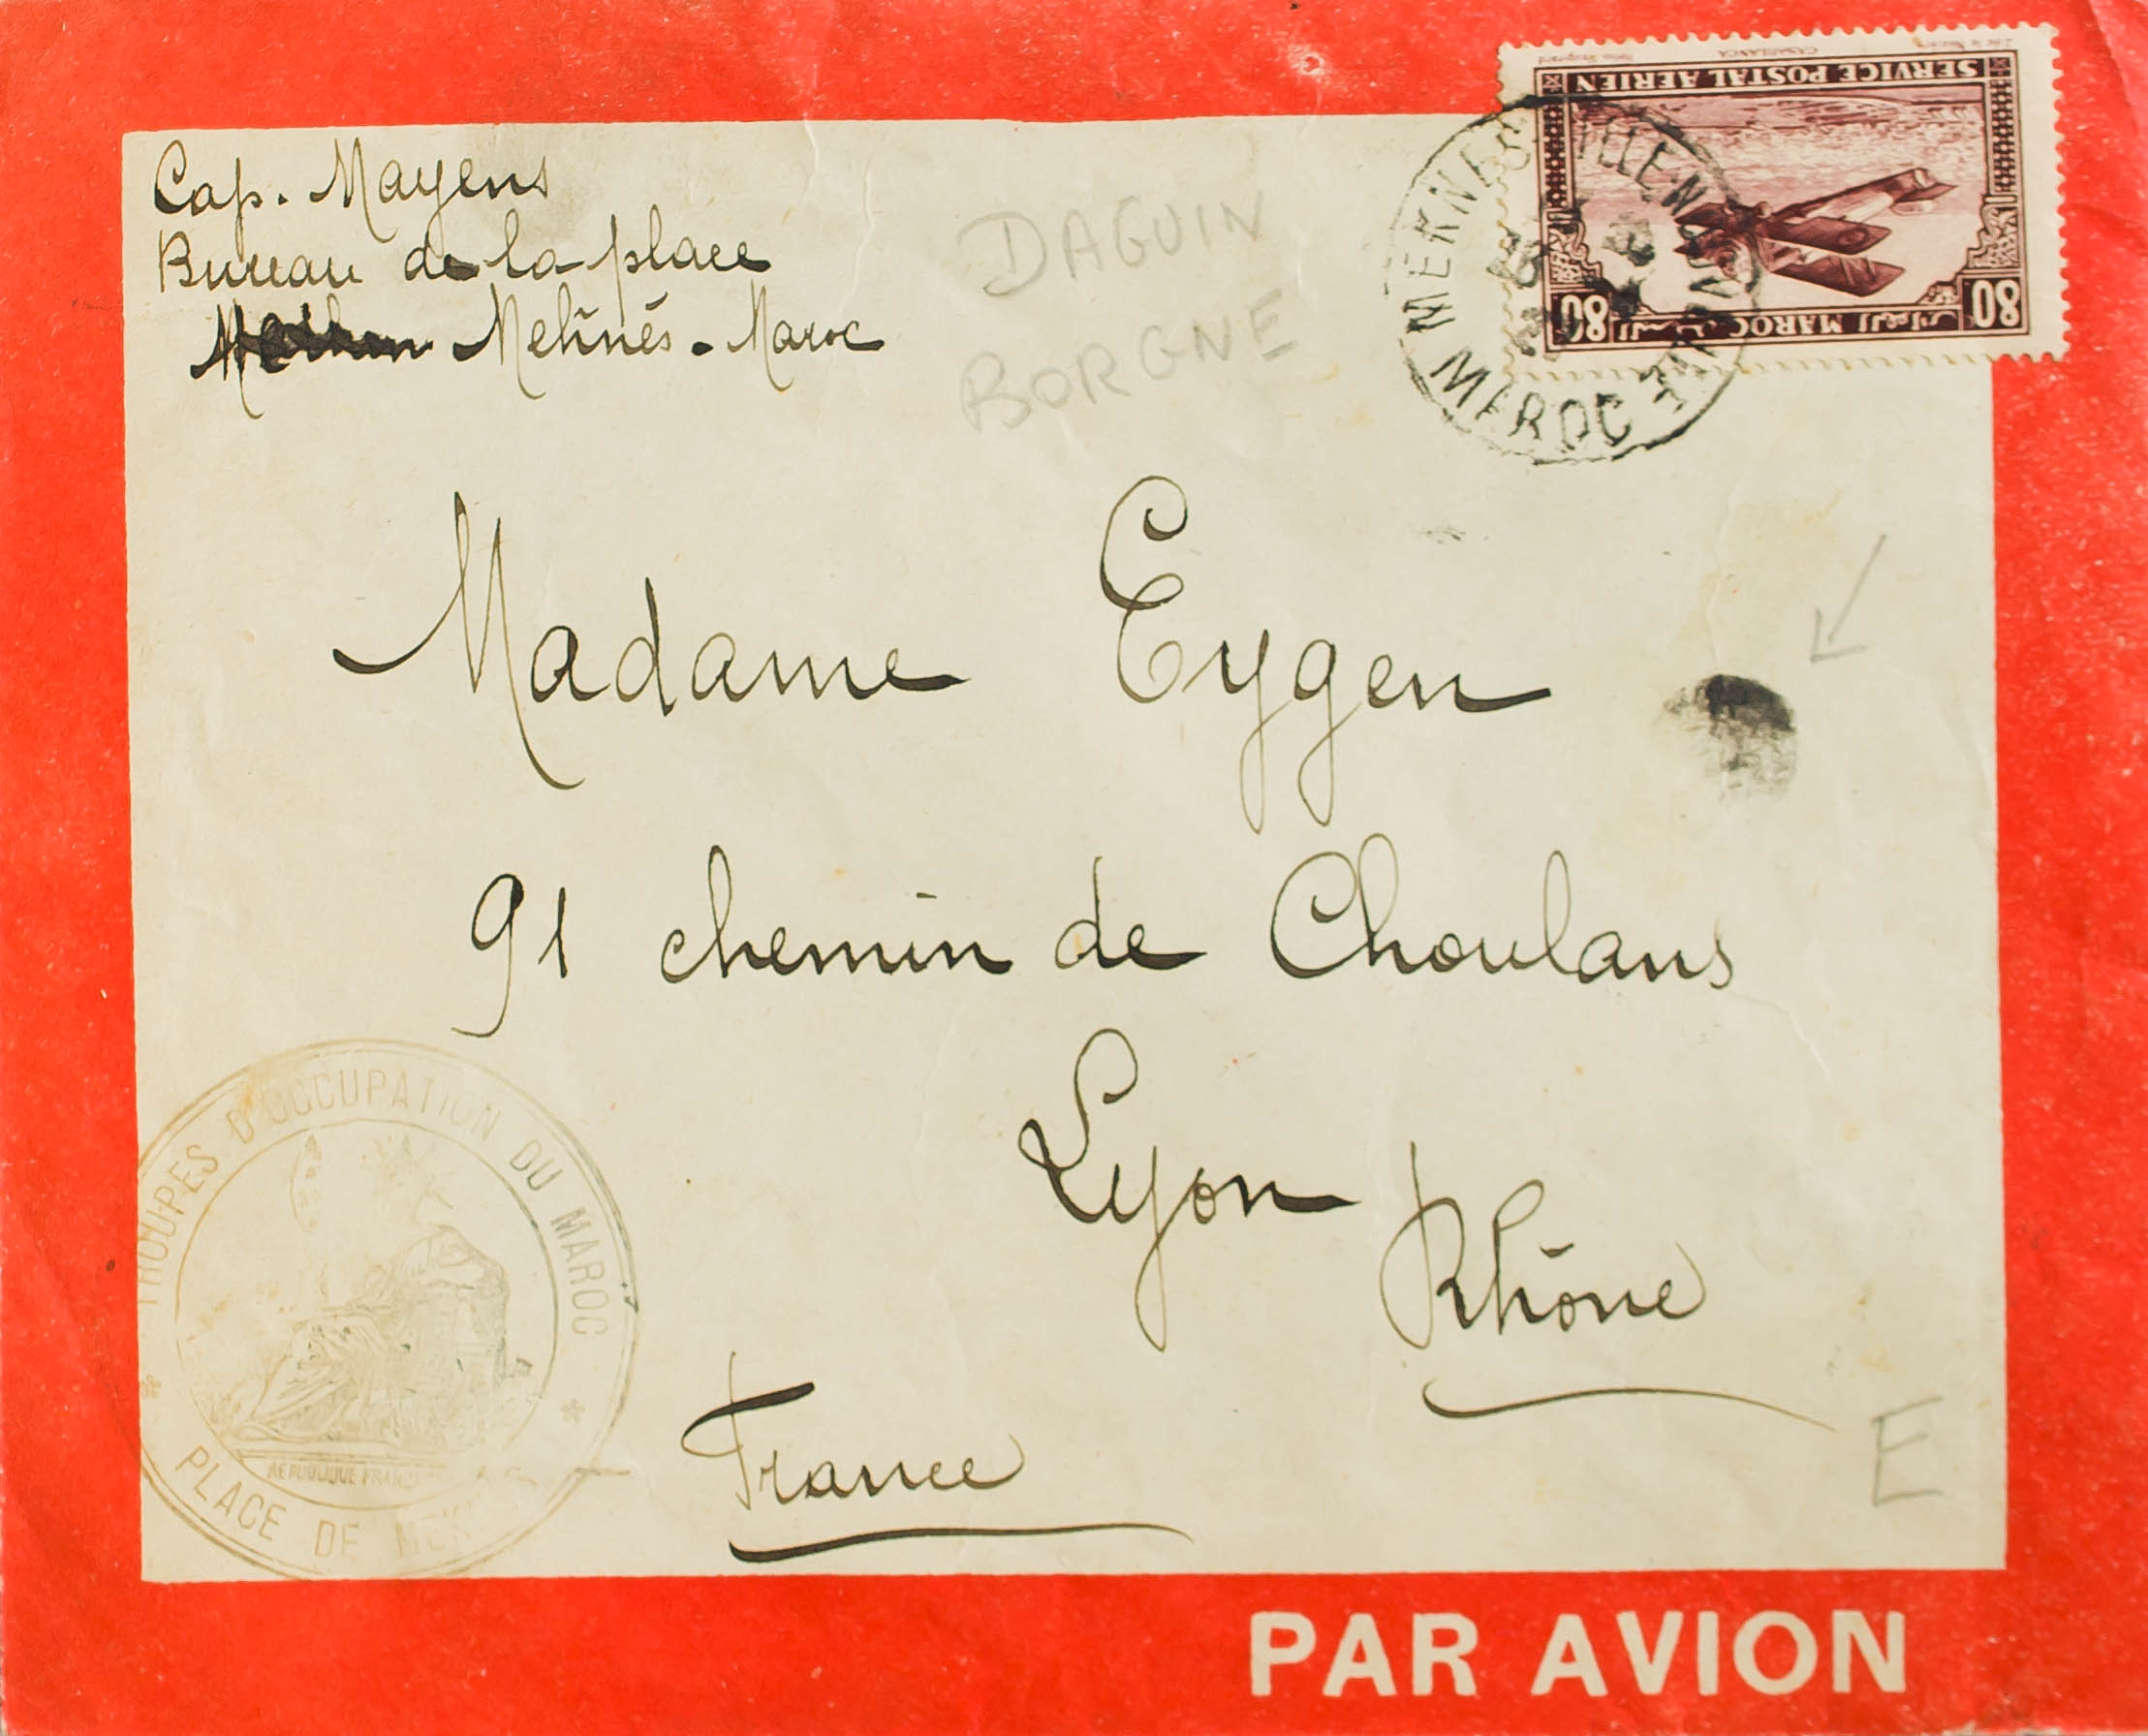 Cap. Mayens
Bureau de la place
Meknès - Maroc
DAGUIN
BORGNE
SERVICE POSTAL AERIEN
CASABLANCA
80 MAROC 80
MEKNES VILLE NOUVELLE
MAROC
Madame Eygen
91 chemin de Choulans
Lyon
Rhône
France
TROUPES D'OCCUPATION DU MAROC
REPUBLIQUE FRANC
PLACE DE MEK
E
PAR AVION